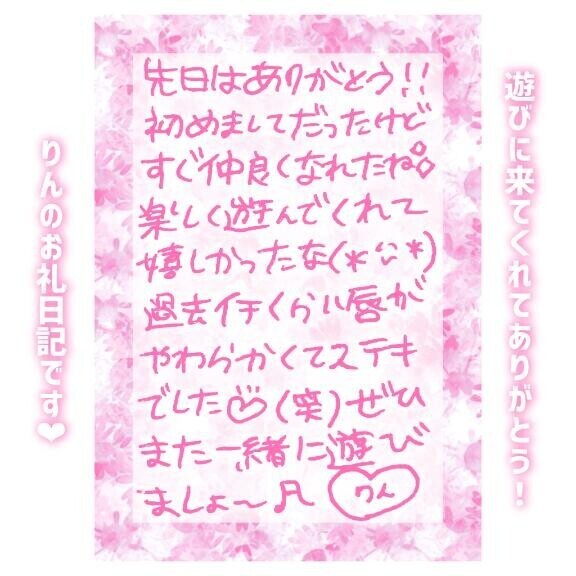 遊びに来てくれてありがとう!
先日はありがとう!!
初めましてだったけど
すぐ仲良くなれたね
楽しく遊んでくれて
嬉しかったな(*ˊᵕˋ*)
過去イチくらい唇が
やわらかくてステキ
でした♡(笑)ぜひ
また一緒に遊び
ましょ〜♬ りん
りんのお礼日記です❤